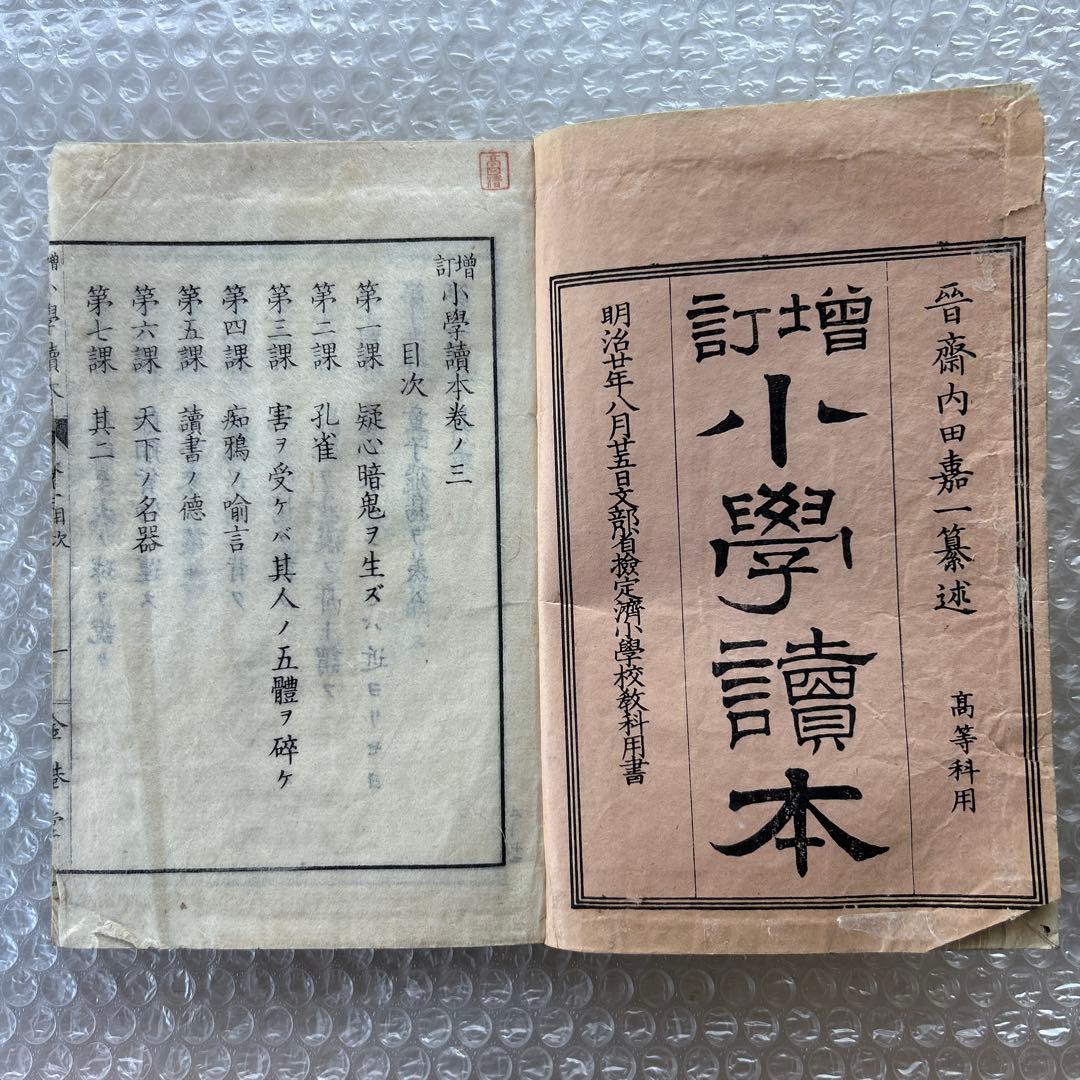 晉齋内田嘉一纂述 髙等科用
增訂小學讀本
明治廿年八月廿五日文部省檢定濟小學校敎科用書
增訂小學讀本卷ノ三
目次
第一課 疑心暗鬼ヲ生ズ
第二課 孔雀
第三課 害ヲ受ケバ其人ノ五體ヲ碎ケ
第四課 痴鴉ノ喻言
第五課 讀書ノ德
第六課 天下ノ名器
第七課 其二
增訂小學讀本 目次 金港堂